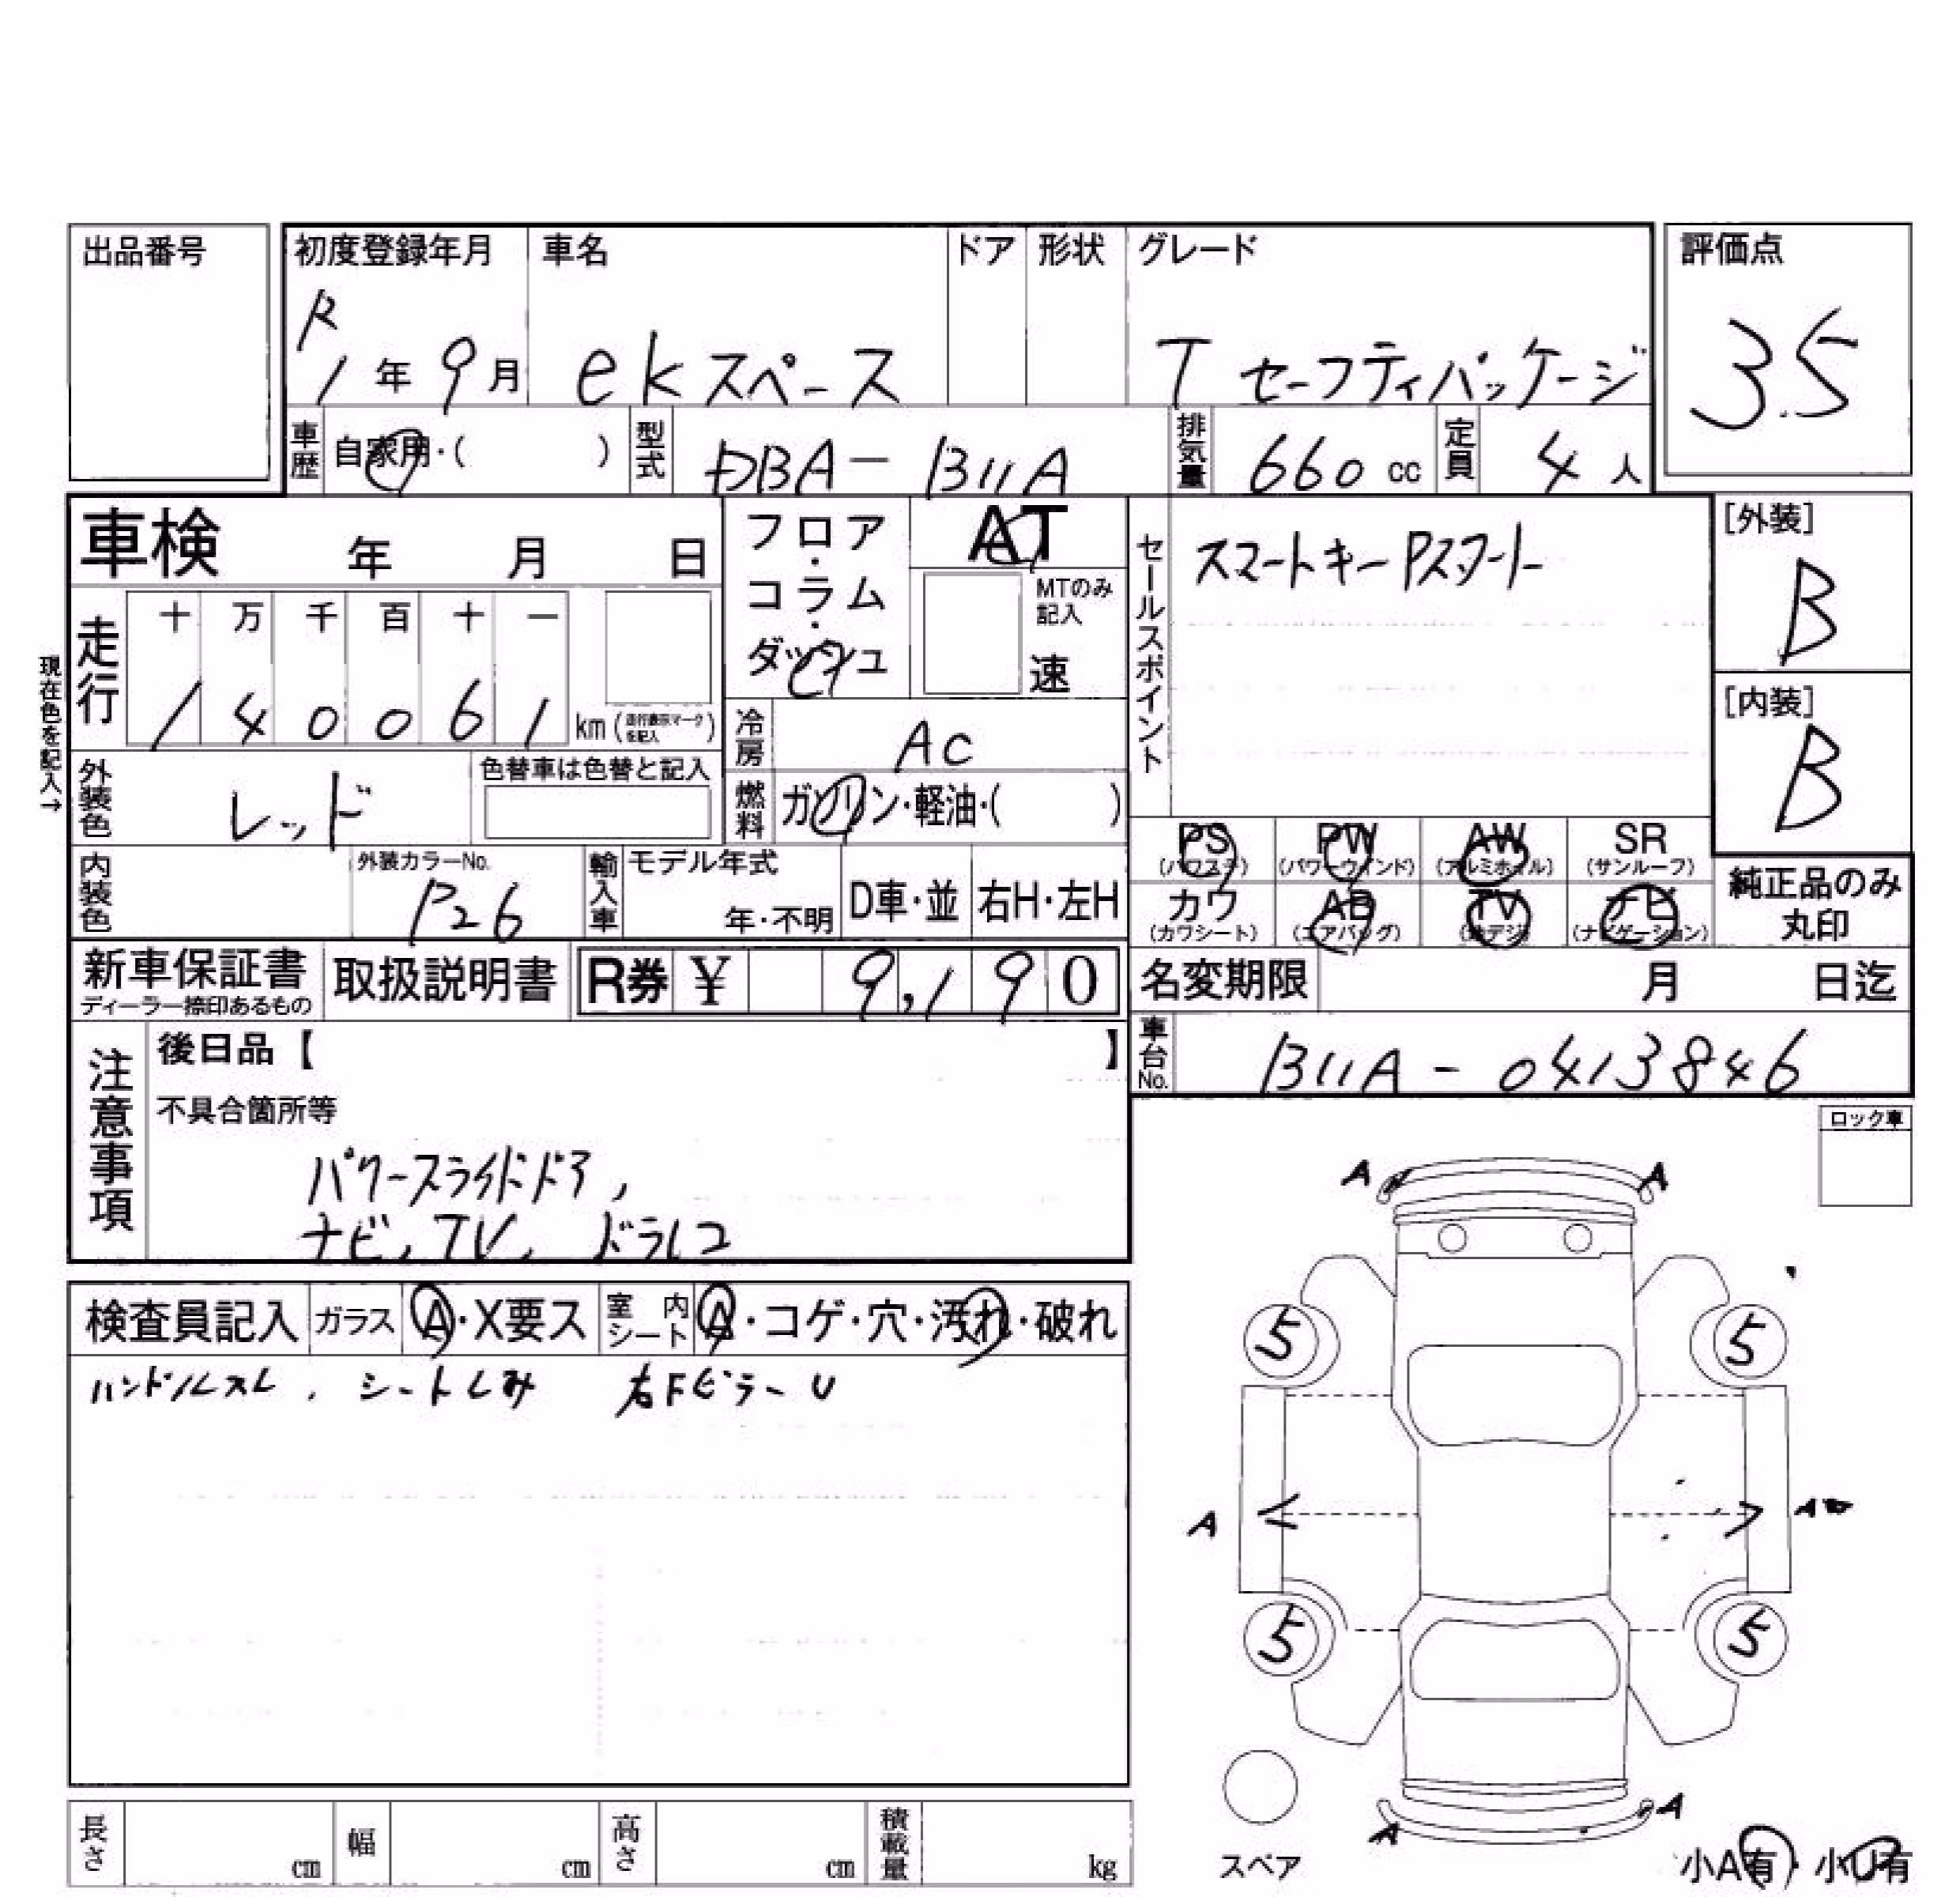 出品番号
初度登録年月 車名 ドア 形状 グレード 評価点
R
1年9月 ekスペース T セーフティパッケージ 3.5
車歴 自家用・( ) 型式 DBA-B11A 排気量 660cc 定員 4人
車検 年 月 日
フロア・コラム・ダッシュ AT
MTのみ記入
速
セールスポイント スマートキー Pスタート
[外装]
B
[内装]
B
現在色を記入→
走行 十 万 千 百 十 一
1 4 0 0 6 1 km (走行表示マークを記入)
冷房 AC
外装色 レッド 色替車は色替と記入
燃料 ガソリン・軽油・( )
PS (パワステ) PW (パワーウィンド) AW (アルミホイル) SR (サンルーフ)
カワ (カワシート) AB (エアバッグ) TV (地デジ) ナビ (ナビゲーション)
純正品のみ
丸印
内装色 外装カラーNo. P26 輸入車 モデル年式 年・不明 D車・並 右H・左H
新車保証書 ディーラー捺印あるもの 取扱説明書 R券 ¥ 9,190
名変期限 月 日迄
車台No. B11A-0413846
注意事項 後日品【 】
不具合箇所等
パワースライドドア,
ナビ, TV, ドラレコ
ロック車
A A
検査員記入 ガラス A・X要ス 室内シート A・コゲ・穴・汚れ・破れ
ハンドルスレ, シートしみ 右Fピラー U
5 5
A A
5 5
A A
スペア
小A有・小U有
長さ cm 幅 cm 高さ cm 積載量 kg